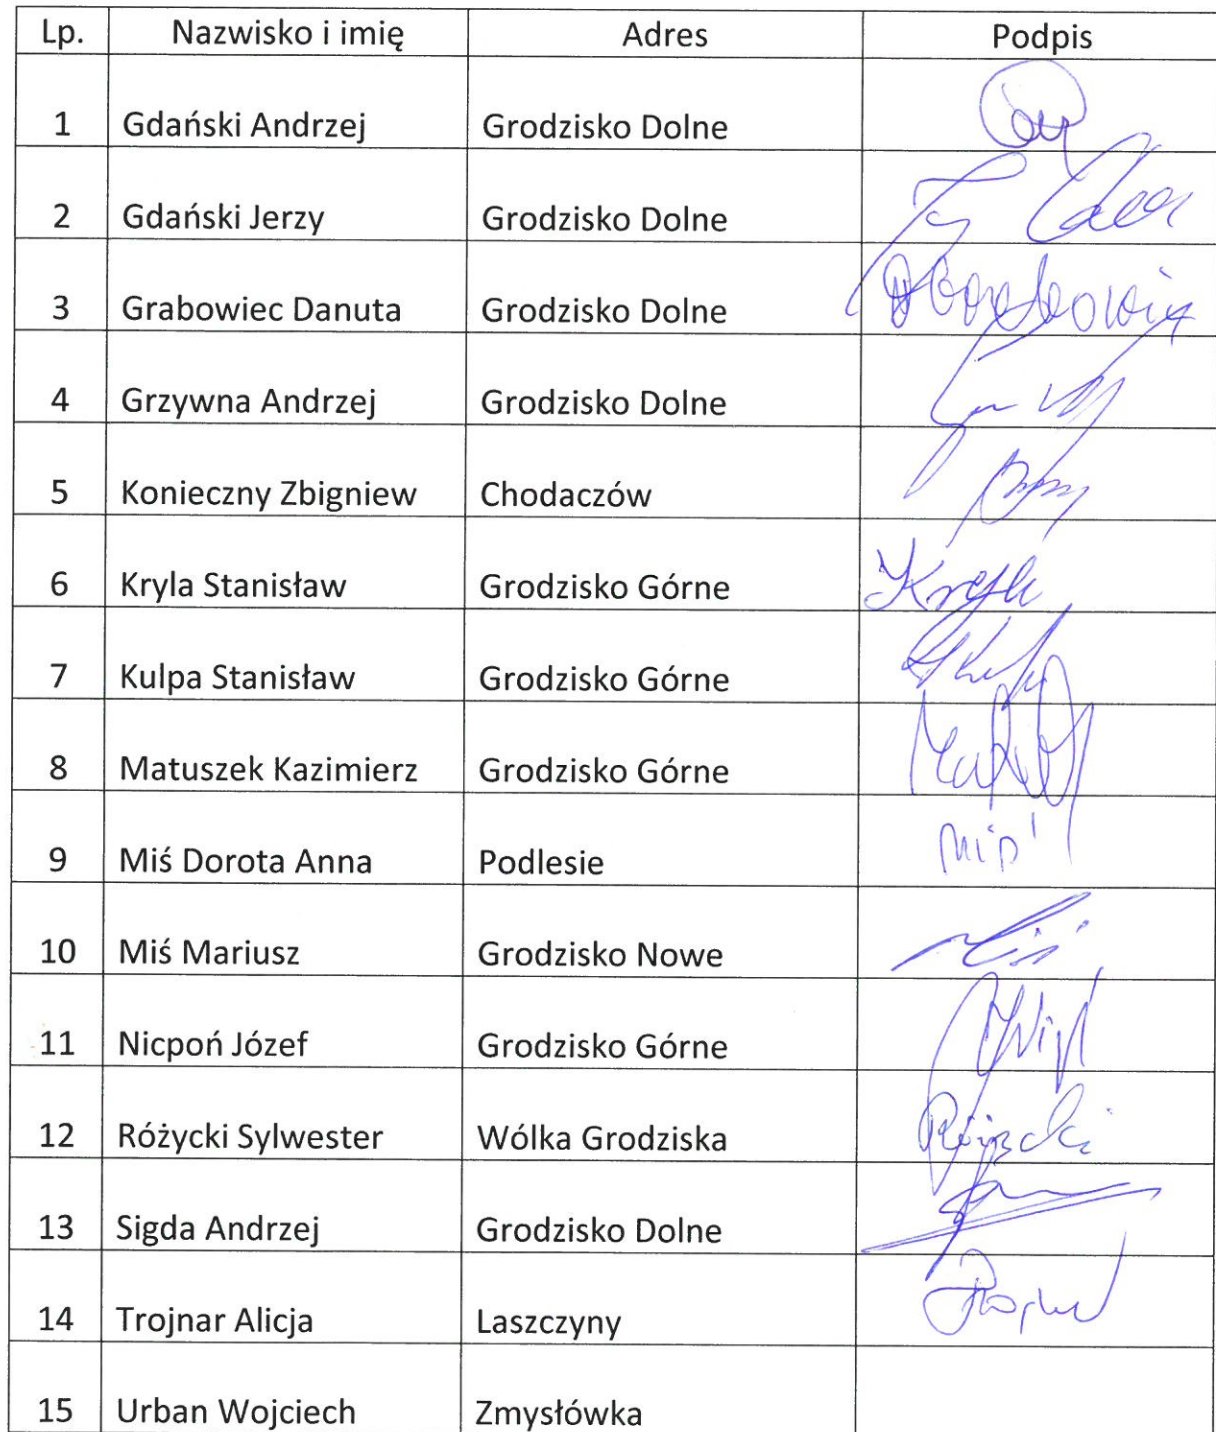 Lp. Nazwisko i imię Adres Podpis
1 Gdański Andrzej Grodzisko Dolne
2 Gdański Jerzy Grodzisko Dolne
3 Grabowiec Danuta Grodzisko Dolne
4 Grzywna Andrzej Grodzisko Dolne
5 Konieczny Zbigniew Chodaczów
6 Kryla Stanisław Grodzisko Górne
7 Kulpa Stanisław Grodzisko Górne
8 Matuszek Kazimierz Grodzisko Górne
9 Miś Dorota Anna Podlesie
10 Miś Mariusz Grodzisko Nowe
11 Nicpoń Józef Grodzisko Górne
12 Różycki Sylwester Wólka Grodziska
13 Sigda Andrzej Grodzisko Dolne
14 Trojnar Alicja Laszczyny
15 Urban Wojciech Zmysłówka